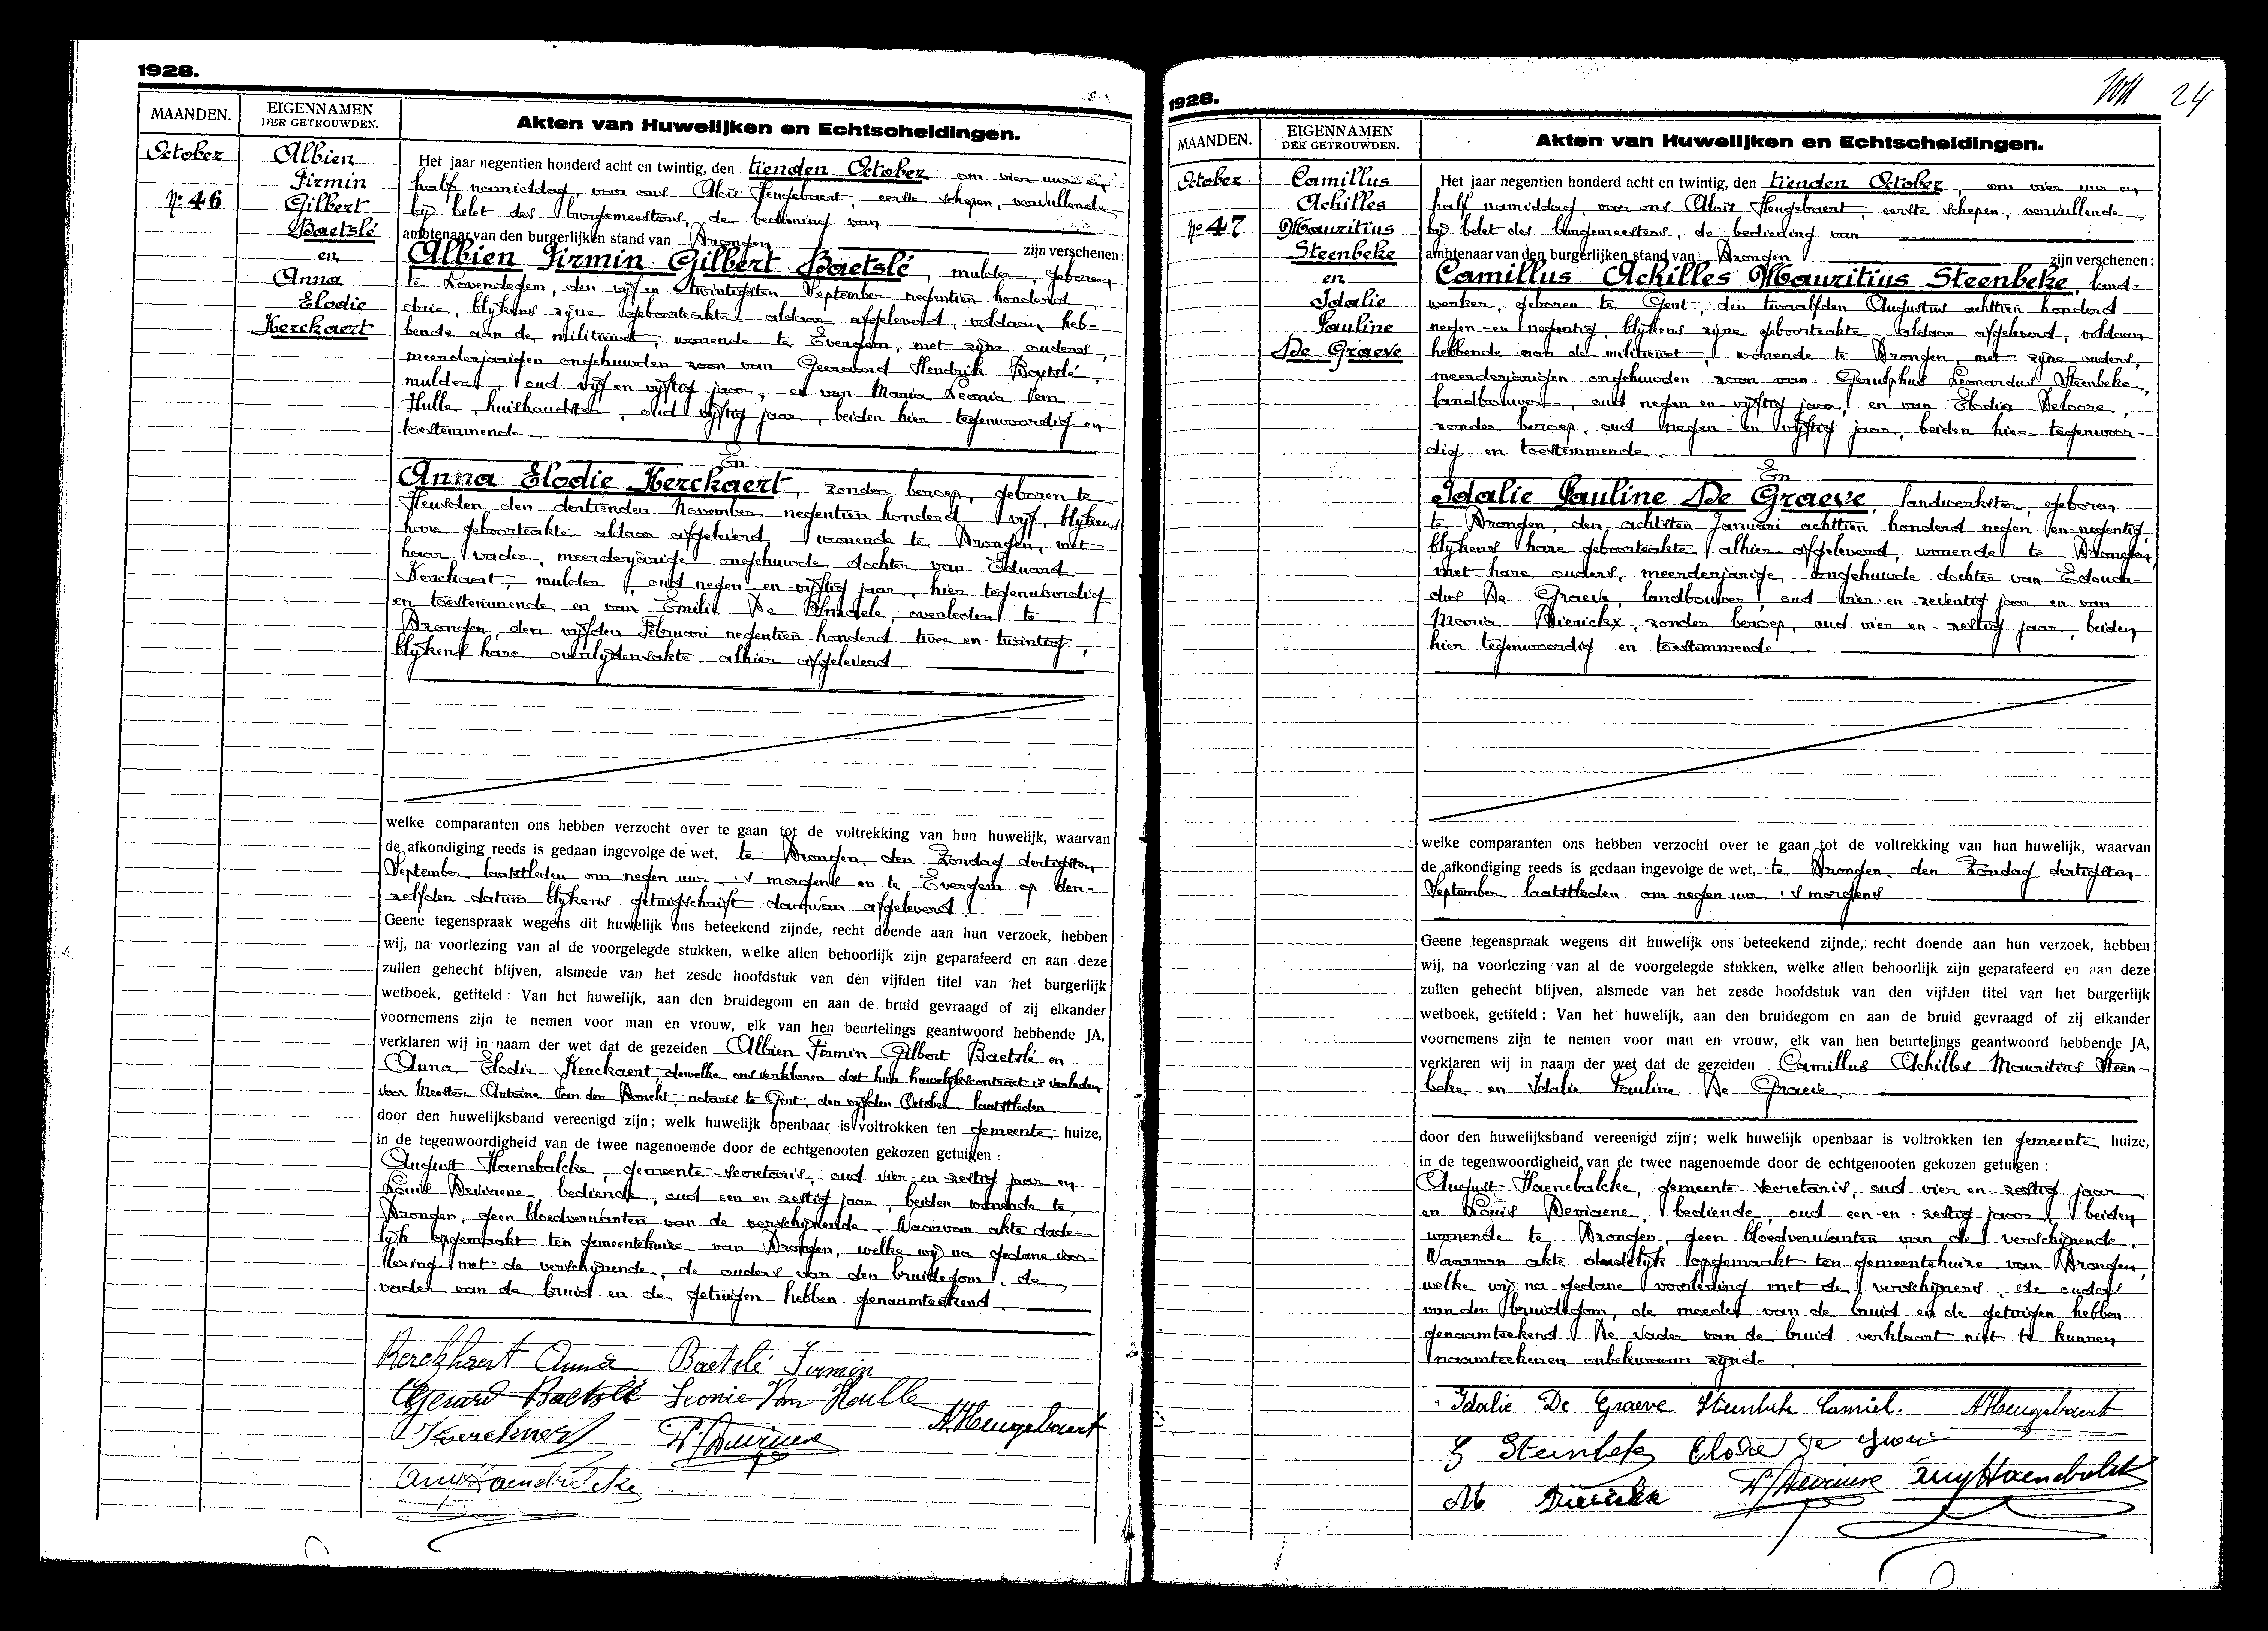 1928.
MAANDEN.
EIGENNAMEN
DER GETROUWDEN.
Akten van Huwelijken en Echtscheidingen.
October
Nº 46
Albien
Firmin
Gilbert
Baetslé
en
Anna
Elodie
Kerckaert
Het jaar negentien honderd acht en twintig, den tienden October om vier uur en
half namiddag, voor ons Aloïs Heugebaert, eerste schepen, vervullende
bij belet des burgemeesters, de bediening van
ambtenaar van den burgerlijken stand van Drongen zijn verschenen:
Albien Firmin Gilbert Baetslé, mulder, geboren
te Lovendegem, den vijf en twintigsten September negentien honderd
drie, blijkens zijne geboorteakte aldaar afgeleverd, voldaan heb-
bende aan de militiewet, wonende te Evergem, met zijne ouders,
meerderjarigen ongehuwden zoon van Geeraard Hendrik Baetslé,
mulder, oud vijf en vijftig jaar, en van Maria Leonia Van
Hulle, huishoudster, oud vijftig jaar, beiden hier tegenwoordig en
toestemmende.
En
Anna Elodie Kerckaert, zonder beroep, geboren te
Heusden den dertienden November negentien honderd vijf, blijkens
hare geboorteakte aldaar afgeleverd, wonende te Drongen, met
haar vader, meerderjarige ongehuwde dochter van Eduard
Kerckaert, mulder, oud negen en vijftig jaar, hier tegenwoordig
en toestemmende en van Emilie De overleden te
Drongen, den vijfden Februari negentien honderd twee en twintig,
blijkens hare overlijdensakte alhier afgeleverd.
welke comparanten ons hebben verzocht over te gaan tot de voltrekking van hun huwelijk, waarvan
de afkondiging reeds is gedaan ingevolge de wet, te Drongen, den Zondag dertigsten
September laatstleden om negen uur 's morgens en te Evergem op den-
zelfden datum blijkens getuigschrift daarvan afgeleverd.
Geene tegenspraak wegens dit huwelijk ons beteekend zijnde, recht doende aan hun verzoek, hebben
wij, na voorlezing van al de voorgelegde stukken, welke allen behoorlijk zijn geparafeerd en aan deze
zullen gehecht blijven, alsmede van het zesde hoofdstuk van den vijfden titel van het burgerlijk
wetboek, getiteld: Van het huwelijk, aan den bruidegom en aan de bruid gevraagd of zij elkander
voornemens zijn te nemen voor man en vrouw, elk van hen beurtelings geantwoord hebbende JA,
verklaren wij in naam der wet dat de gezeiden Albien Firmin Gilbert Baetslé en
Anna Elodie Kerckaert, dewelke ons verklaren dat hun huwelijkskontract is verleden
voor Meester Antoine Van der Donckt, notaris te Gent, den vijfden October laatstleden
door den huwelijksband vereenigd zijn; welk huwelijk openbaar is voltrokken ten gemeente huize,
in de tegenwoordigheid van de twee nagenoemde door de echtgenooten gekozen getuigen:
August Haenebalcke, gemeente-secretaris, oud vier en zestig jaar en
Louis Deviaene, bediende, oud een en zestig jaar, beiden wonende te
Drongen, geen bloedverwanten van de verschijnende. Waarvan akte dade-
lijk opgemaakt ten gemeentehuize van Drongen, welke wij na gedane voor-
lezing met de verschijnende, de ouders van den bruidegom, de
vader van de bruid en de getuigen hebben genaamteekend.
Kerckhaert Anna Baetslé Firmin
Gerard Baetslé Leonie Van Hulle
A. Heugebaert
1928.
24
MAANDEN.
EIGENNAMEN
DER GETROUWDEN.
Akten van Huwelijken en Echtscheidingen.
October
Nº 47
Camillus
Achilles
Mauritius
Steenbeke
en
Idalie
Pauline
De Graeve
Het jaar negentien honderd acht en twintig, den tienden October, om vier uur en
half namiddag, voor ons Aloïs Heugebaert, eerste schepen, vervullende
bij belet des burgemeesters, de bediening van
ambtenaar van den burgerlijken stand van Drongen zijn verschenen:
Camillus Achilles Mauritius Steenbeke, land-
werker, geboren te Gent, den twaalfden Augustus achttien honderd
negen-en negentig, blijkens zijne geboorteakte aldaar afgeleverd, voldaan
hebbende aan de militiewet, wonende te Drongen, met zijne ouders,
meerderjarigen ongehuwden zoon van Gerulphus Leonardus Steenbeke,
landbouwer, oud negen en vijftig jaar, en van Elodia Deloore,
zonder beroep, oud negen en vijftig jaar, beiden hier tegenwoor-
dig en toestemmende.
En
Idalie Pauline De Graeve, landwerkster, geboren
te Drongen, den achtsten Januari achttien honderd negen-en-negentig,
blijkens hare geboorteakte alhier afgeleverd, wonende te Drongen,
met hare ouders, meerderjarige, ongehuwde dochter van Edouar-
dus De Graeve, landbouwer, oud vier-en-zeventig jaar en van
Maria Dierickx, zonder beroep, oud vier en zestig jaar, beiden
hier tegenwoordig en toestemmende.
welke comparanten ons hebben verzocht over te gaan tot de voltrekking van hun huwelijk, waarvan
de afkondiging reeds is gedaan ingevolge de wet, te Drongen, den Zondag dertigsten
September laatstleden om negen uur 's morgens
Geene tegenspraak wegens dit huwelijk ons beteekend zijnde, recht doende aan hun verzoek, hebben
wij, na voorlezing van al de voorgelegde stukken, welke allen behoorlijk zijn geparafeerd en aan deze
zullen gehecht blijven, alsmede van het zesde hoofdstuk van den vijfden titel van het burgerlijk
wetboek, getiteld: Van het huwelijk, aan den bruidegom en aan de bruid gevraagd of zij elkander
voornemens zijn te nemen voor man en vrouw, elk van hen beurtelings geantwoord hebbende JA,
verklaren wij in naam der wet dat de gezeiden Camillus Achilles Mauritius Steen-
beke en Idalie Pauline De Graeve
door den huwelijksband vereenigd zijn; welk huwelijk openbaar is voltrokken ten gemeente huize,
in de tegenwoordigheid van de twee nagenoemde door de echtgenooten gekozen getuigen:
August Haenebalcke, gemeente secretaris, oud vier en zestig jaar
en Louis Deviaene, bediende, oud een-en-zestig jaar, beiden
wonende te Drongen, geen bloedverwanten van de verschijnende.
Waarvan akte dadelijk opgemaakt ten gemeentehuize van Drongen,
welke wij na gedane voorlezing met de verschijners, de ouders
van den bruidegom, de moeder van de bruid en de getuigen hebben
genaamteekend. De Vader van de bruid verklaart niet te kunnen
naamteekenen onbekwaam zijnde.
Idalie De Graeve Steenbeke Camiel. A. Heugebaert
G Steenbeke Elodie
M Dierickx L. Deviaene Aug Haenebalcke